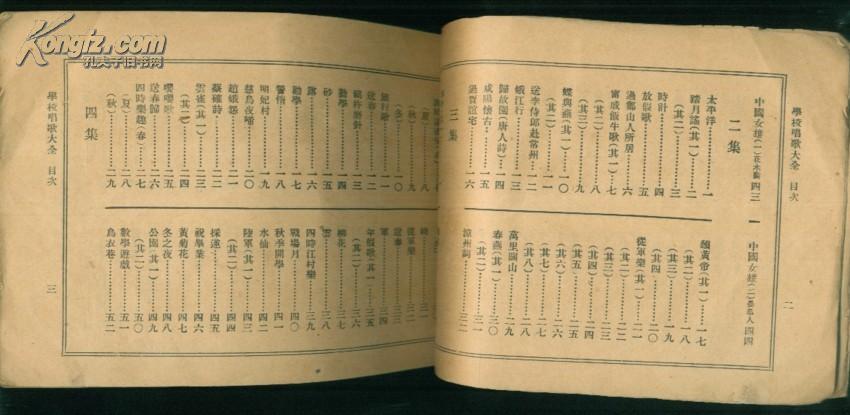 Kongfz.com
孔夫子旧书网
學校唱歌大全 目次
二
中國女雄(一)花木蘭 四三
中國女雄(二) 四四
二集
太平洋 一
踏月謠(其一) 二
(其二) 三
時計 四
放假歌 五
過鄰山人所居 六
甯戚飯牛歌(其一) 七
(其二) 八
(其三) 九
蝶與燕(其一) 一〇
(其二) 一一
送李侍郎赴常州 一二
錢江行 一三
歸故園(唐人詩) 一四
咸陽懷古 一五
過賈誼宅 一六
頌黃帝(其一) 一七
(其二) 一八
(其三) 一九
(其四) 二〇
從軍樂(其一) 二一
(其二) 二二
(其三) 二三
(其四) 二四
(其五) 二五
(其六) 二六
(其七) 二七
(其八) 二八
萬里關山 二九
春燕(其一) 三〇
(其二) 三一
涼州詞 三二
三集
(夏) 八
(秋) 九
(冬) 一〇
送春 一二
鐵杵磨針 一三
勤學 一四
砂 一五
勸學 一七
警惰 一八
明妃村 一九
慈烏夜啼 二〇
趙娥怨 二一
蔡確詩 二二
雲雀(其一) 二三
(其二) 二四
嚶鳴歌 二五
送春歸 二六
四時樂趣(春) 二七
(夏) 二八
(秋) 二九
從軍樂 三三
軍 三四
年假歌(其一) 三五
(其二) 三六
柳花 三七
雲 三八
四時江村樂 三九
戰場月 四〇
秋季開學 四一
水仙 四二
陸軍(其一) 四三
(其二) 四四
採蓮 四五
祝畢業 四六
黃菊花 四七
冬之夜 四八
公園(其一) 四九
(其二) 五〇
數學遊戲 五一
烏衣巷 五二
四集
學校唱歌大全 目次
三